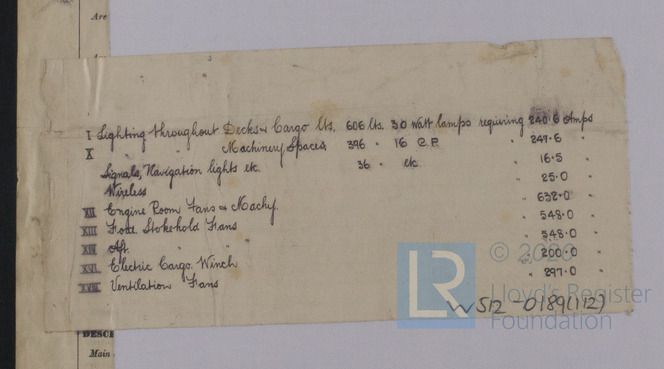 Are
I Lighting throughout Decks & Cargo Lts. 606 Lts. 30 Watt lamps requiring 240.6 Amps
X " " Machinery Spaces 396 " 16 C.P. " 247.6 "
Signals, Navigation lights etc. 36 " etc " 16.5 "
Wireless " 25.0 "
XII Engine Room Fans & Machy. " 632.0 "
XIII Fore Stokehold Fans " 548.0 "
XIV Aft. " " " 548.0 "
XVI Electric Cargo Winch " 200.0 "
Ventilation Fans " 297.0 "
© 2020
LR
Lloyd's Register
Foundation
WS12-0189(1/2)
DESC
Main